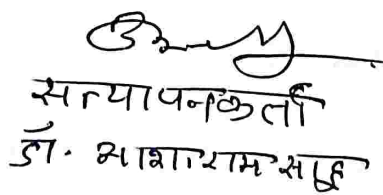 सत्यापनकर्ता
डॉ. आशाराम साहू